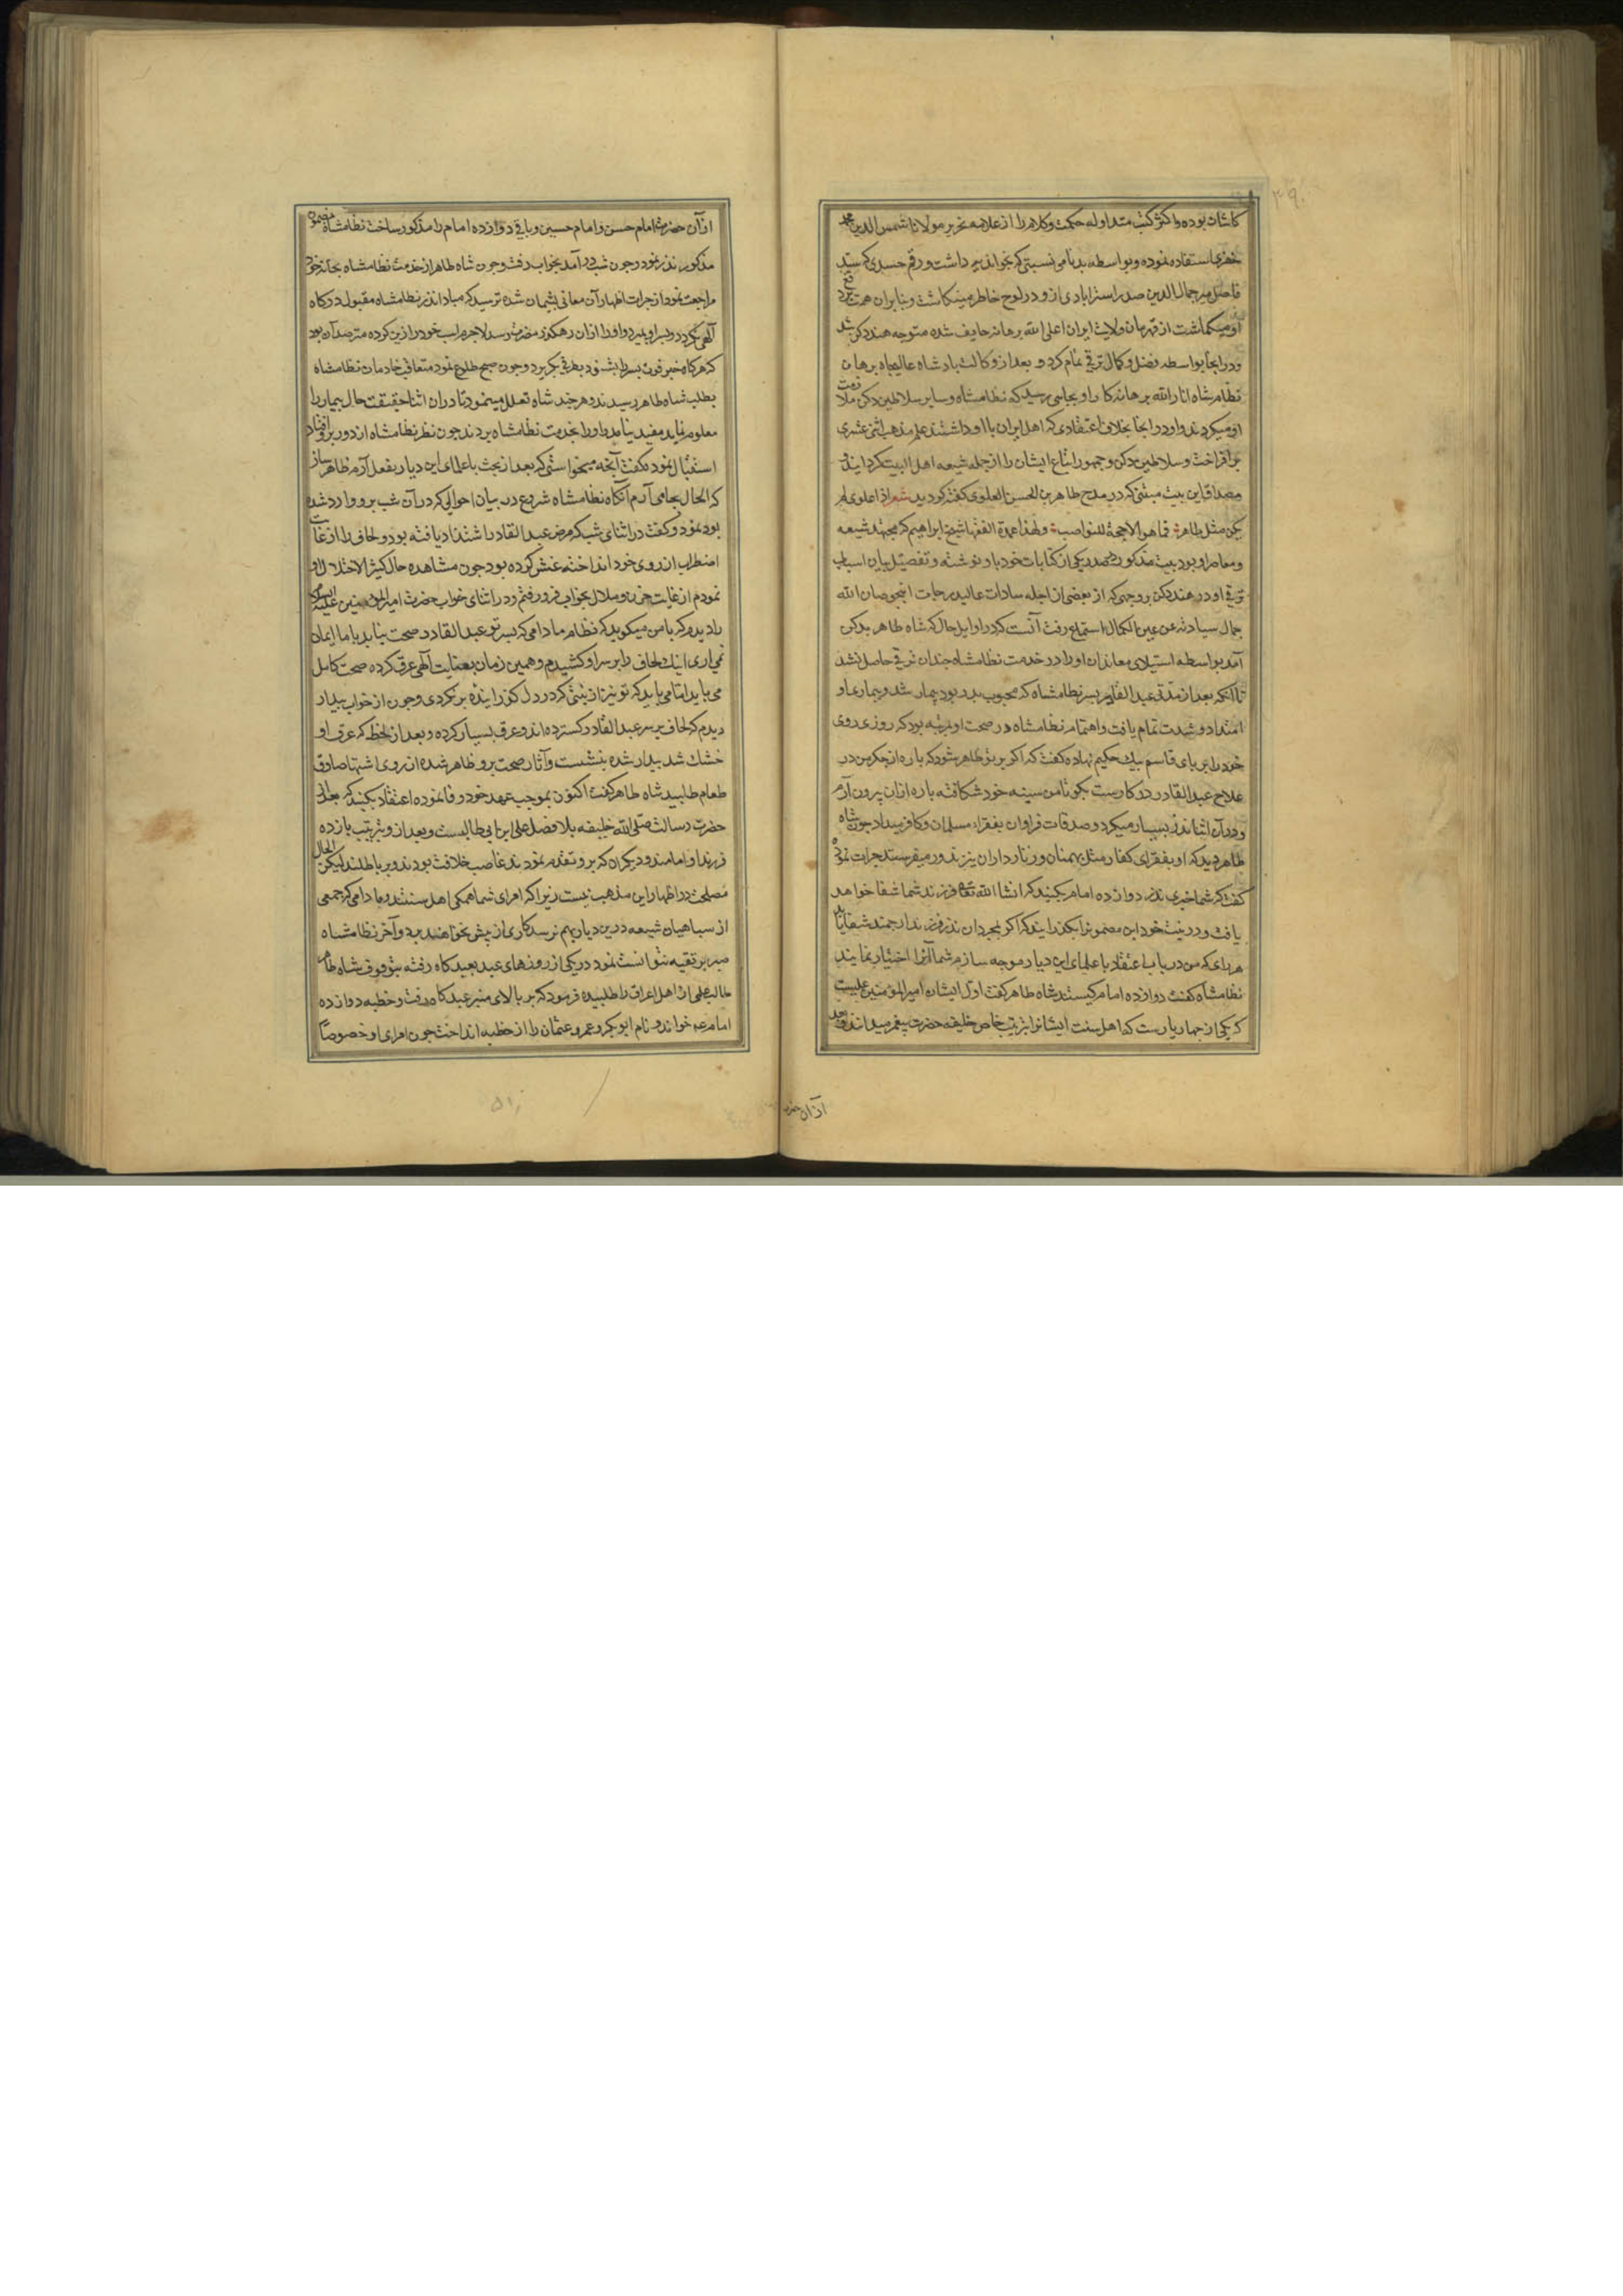 کاشان بوده و اکثر کتب متداوله حکمت و کلام را از علامه نحریر مولانا شمس الدین محمد
خفری استفاده نموده و بواسطه بدنامی نسبتی که بخواندیه داشت و رقم حسدی که سید
فاضل میر جمال الدین صدر استرابادی ازو در لوح خاطر مینکاشت و بنابران همت بر
او میکماشت از قهرمان ولایت ایران اعلی الله برهانه خایف شده متوجه هند دکن شد
و در انجا بواسطه فضل و کمال ترقی تمام کرد و بعد از وکالت بادشاه عالیجاه برهان
نظام شاه انار الله برهانه کار او بجایی رسید که نظامشاه و سایر سلاطین دکن ملازمت
او میکردند و او در انجا بخلاف اعتقادی که اهل ایران با او داشتند علم مذهب اثنی عشری
بر افراخت و سلاطین دکن و جمهور اتباع ایشان را از جمله شیعه اهل البیت کردانید
مصداق این بیت متنبی که در مدح طاهر بن الحسن العلوی کفته کردید شعر اذا علوی لم
یکن مثل طاهر فما هو الا حجة للنواصب و لهذا عمدة الفقها شیخ ابراهیم که مجتهد شیعه
و معاصر او بود بیت مذکور در صدر یکی از کتابات خود باو نوشته و تفصیل بیان اسباب
ترقی او در هند دکن بروجهی که از بعضی از اجله سادات عالیدرجات انجو صان الله
جمال سیادته عن عین الکمال استماع رفت آنست که در اوایل حال که شاه طاهر بدکن
آمد بواسطه استیلای معاندان او را در خدمت نظامشاه چندان ترقی حاصل نشد
تا آنکه بعد از مدتی عبد القادر پسر نظامشاه که محبوب پدر بود بیمار شد و بیماری او
امتداد و شدت تمام یافت و اهتمام نظامشاه در صحت او بمرتبه بود که روزی روی
خود را بر پای قاسم بیک حکیم نهاده کفت که اکر بر تو ظاهر شود که پاره از جکر من در
علاج عبد القادر در کارست بکو تا من سینه خود شکافته پاره ازان بیرون آرم
و در آن اثنا نذر بسیار میکرد و صدقات فراوان بفقراء مسلمان و کافر میداد چون شاه
طاهر دید که او بفقرای کفار مثل برهمنان و زنارداران نیز نذور میفرستد جرات نموده
کفت که شما خیری نذر دوازده امام بکنید که انشا الله تعالی فرزند شما شفا خواهد
یافت و در نیت خود این مضمونرا بکذرانید که اکر بمجرد آن نذر فرزند ارجمند شفا یابد
هر رای که من در باب اعتقاد با علمای این دیار موجه سازم شما آنرا اختیار نمایند
نظامشاه کفت دوازده امام کیستند شاه طاهر کفت اول ایشان امیر المؤمنین علیست
که یکی از چهار یارست که اهل سنت ایشانرا بترتیب خاص خلیفه حضرت پیغمبر میدانند و بعد
از آن حضرت
از آن حضرت امام حسن و امام حسین و باقی دوازده امام را مذکور ساخت نظامشاه مضمون
مذکور نذر نمود و چون شب در آمد بخواب رفت و چون شاه طاهر از خدمت نظامشاه بخانه خود
مراجعت نمود از جرات اظهار آن معانی پشیمان شده ترسید که مبادا نذر نظامشاه مقبول درکاه
آلهی نکردد و پسر او بمیرد و او را ازان رهکذر مضرت رسد لاجرم اسب خود را زین کرده مترصد آن بود
که هر کاه خبر فوت پسر را بشنود بطرفی بکریزد و چون صبح طلوع نمود متعاقب خادمان نظامشاه
بطلب شاه طاهر رسیدند و هر چند شاه تعلل مینمود تا در ان اثنا حقیقت حال بیمار را
معلوم نماید مفید نیامد و او را بخدمت نظامشاه بردند چون نظر نظامشاه از دور برو افتاد
استقبال نمود و کفت آنچه میخواستی که بعد از بحث با علمای این دیار بفعل آرم ظاهر ساز
که الحال بجا می آرم آنکاه نظامشاه شروع در بیان احوالی که در آن شب برو وارد شده
بود نمود و کفت در اثنای شب که مرض عبد القادر اشتداد یافته بود و لحاف را از غایت
اضطراب از روی خود انداخته غش کرده بود چون مشاهده حال کثیر الاختلال او
نمودم از غایت حزن و ملال بخواب فرو رفتم و در اثنای خواب حضرت امیر المؤمنین علیه السلام
را دیدم که با من میکوید که نظام ما دامی که پسر تو عبد القادر صحت نیابد باما ایمان
نمی اری اینک لحاف را بر سر او کشیدم و همین زمان بعنایت آلهی عرق کرده صحت کامل
می یابد اما می باید که تو نیز از نیتی که در دل کذرانیده برنکردی و چون از خواب بیدار
دیدم که لحاف بر سر عبد القادر کسترده اند و عرق بسیار کرده و بعد از لحظه که عرق او
خشک شد بیدار شده بنشست و آثار صحت برو ظاهر شده از روی اشتها صادق
طعام طلبید شاه طاهر کفت اکنون بموجب عهد خود وفا نموده اعتقاد بکنید که بعد از
حضرت رسالت صلی الله خلیفه بلا فصل علی ابن ابی طالبست و بعد از و بترتیب یازده
فرزند او امامند و دیکران که برو تقدم نمودند غاصب خلافت بودند و بر باطلند لیکن الحال
مصلحت در اظهار این مذهب نیست زیرا که امرای شما همکی اهل سنتند و ما دامی که جمعی
از سپاهیان شیعه درین دیار بهم نرسد کاری از پیش نخواهند برد و آخر نظامشاه
صبر بر تقیه نتوانست نمود در یکی از روزهای عید بعیدکاه رفته بتوقف شاه طاهر
طالبعلمی از اهل اعراق را طلبیده فرمود که بر بالای منبر عیدکاه رفت و خطبه دوازده
امام ع خواند و نام ابو بکر و عمر و عثمان را از خطبه انداخت چون امرای او خصوصا